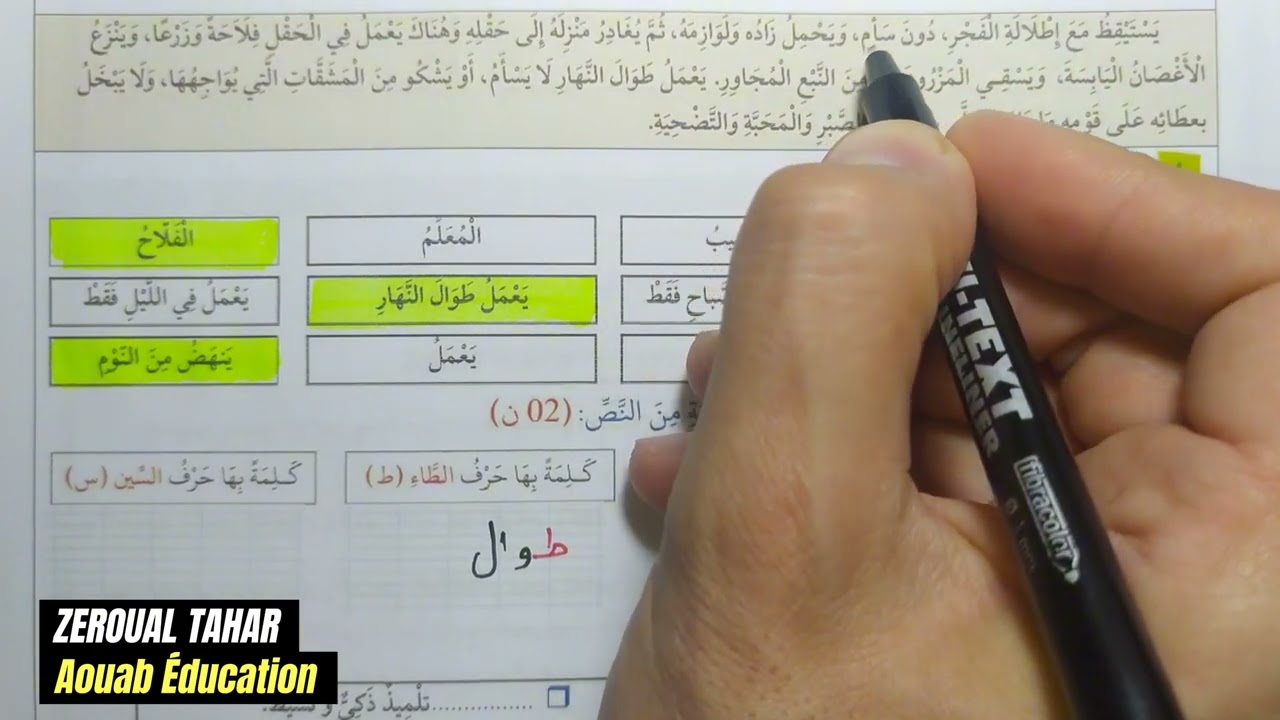 يَسْتَيْقِظُ مَعَ إِطْلَالَةِ الْفَجْرِ، دُونَ سَأَمٍ، وَيَحْمِلُ زَادُه وَلَوَازِمَهُ، ثُمَّ يُغَادِرُ مَنْزِلَهُ إِلَى حَقْلِهِ وَهُنَاكَ يَعْمَلُ فِي الْحَقْلِ فِلَاحَةً وَزَرْعًا، وَيَنْزَعُ
الْأَغْصَانُ الْيَابِسَةَ، وَيَسْقِـي النَّبْعِ الْمُجَاوِرِ. يَعْمَلُ طَوَالَ النَّهَارِ لَا يَسْأَمُ، أَوْ يَشْكُو مِنَ الْمَشَقَّاتِ الَّتِي يُوَاجِهُهَا، وَلَا يَبْخَلُ
بِعطَائِه عَلَى قَوْمِهِ وَالْمَحَبَّةِ وَالتَّضْحِيَةِ.
الْمُعَلِّمُ الْفَلَّاحُ
فَقَطْ يَعْمَلُ طَوَالَ النَّهَارِ يَعْمَلُ فِي اللَّيْلِ فَقَطْ
يَعْمَلُ يَنهَضُ مِنَ النَّوْمِ
مِنَ النَّصِّ: (02 ن)
كَـلِمَةً بِهَا حَرْفُ الطَّاءِ (ط) كَـلِمَةً بِهَا حَرْفُ السِّين (س)
طوال
ZEROUAL TAHAR
Aouab Éducation
❑ ................تلْمِيذٌ ذَكِيٌّ وَ نَشِيطٌ.
N-TEXT
FINELINER
fibracolor